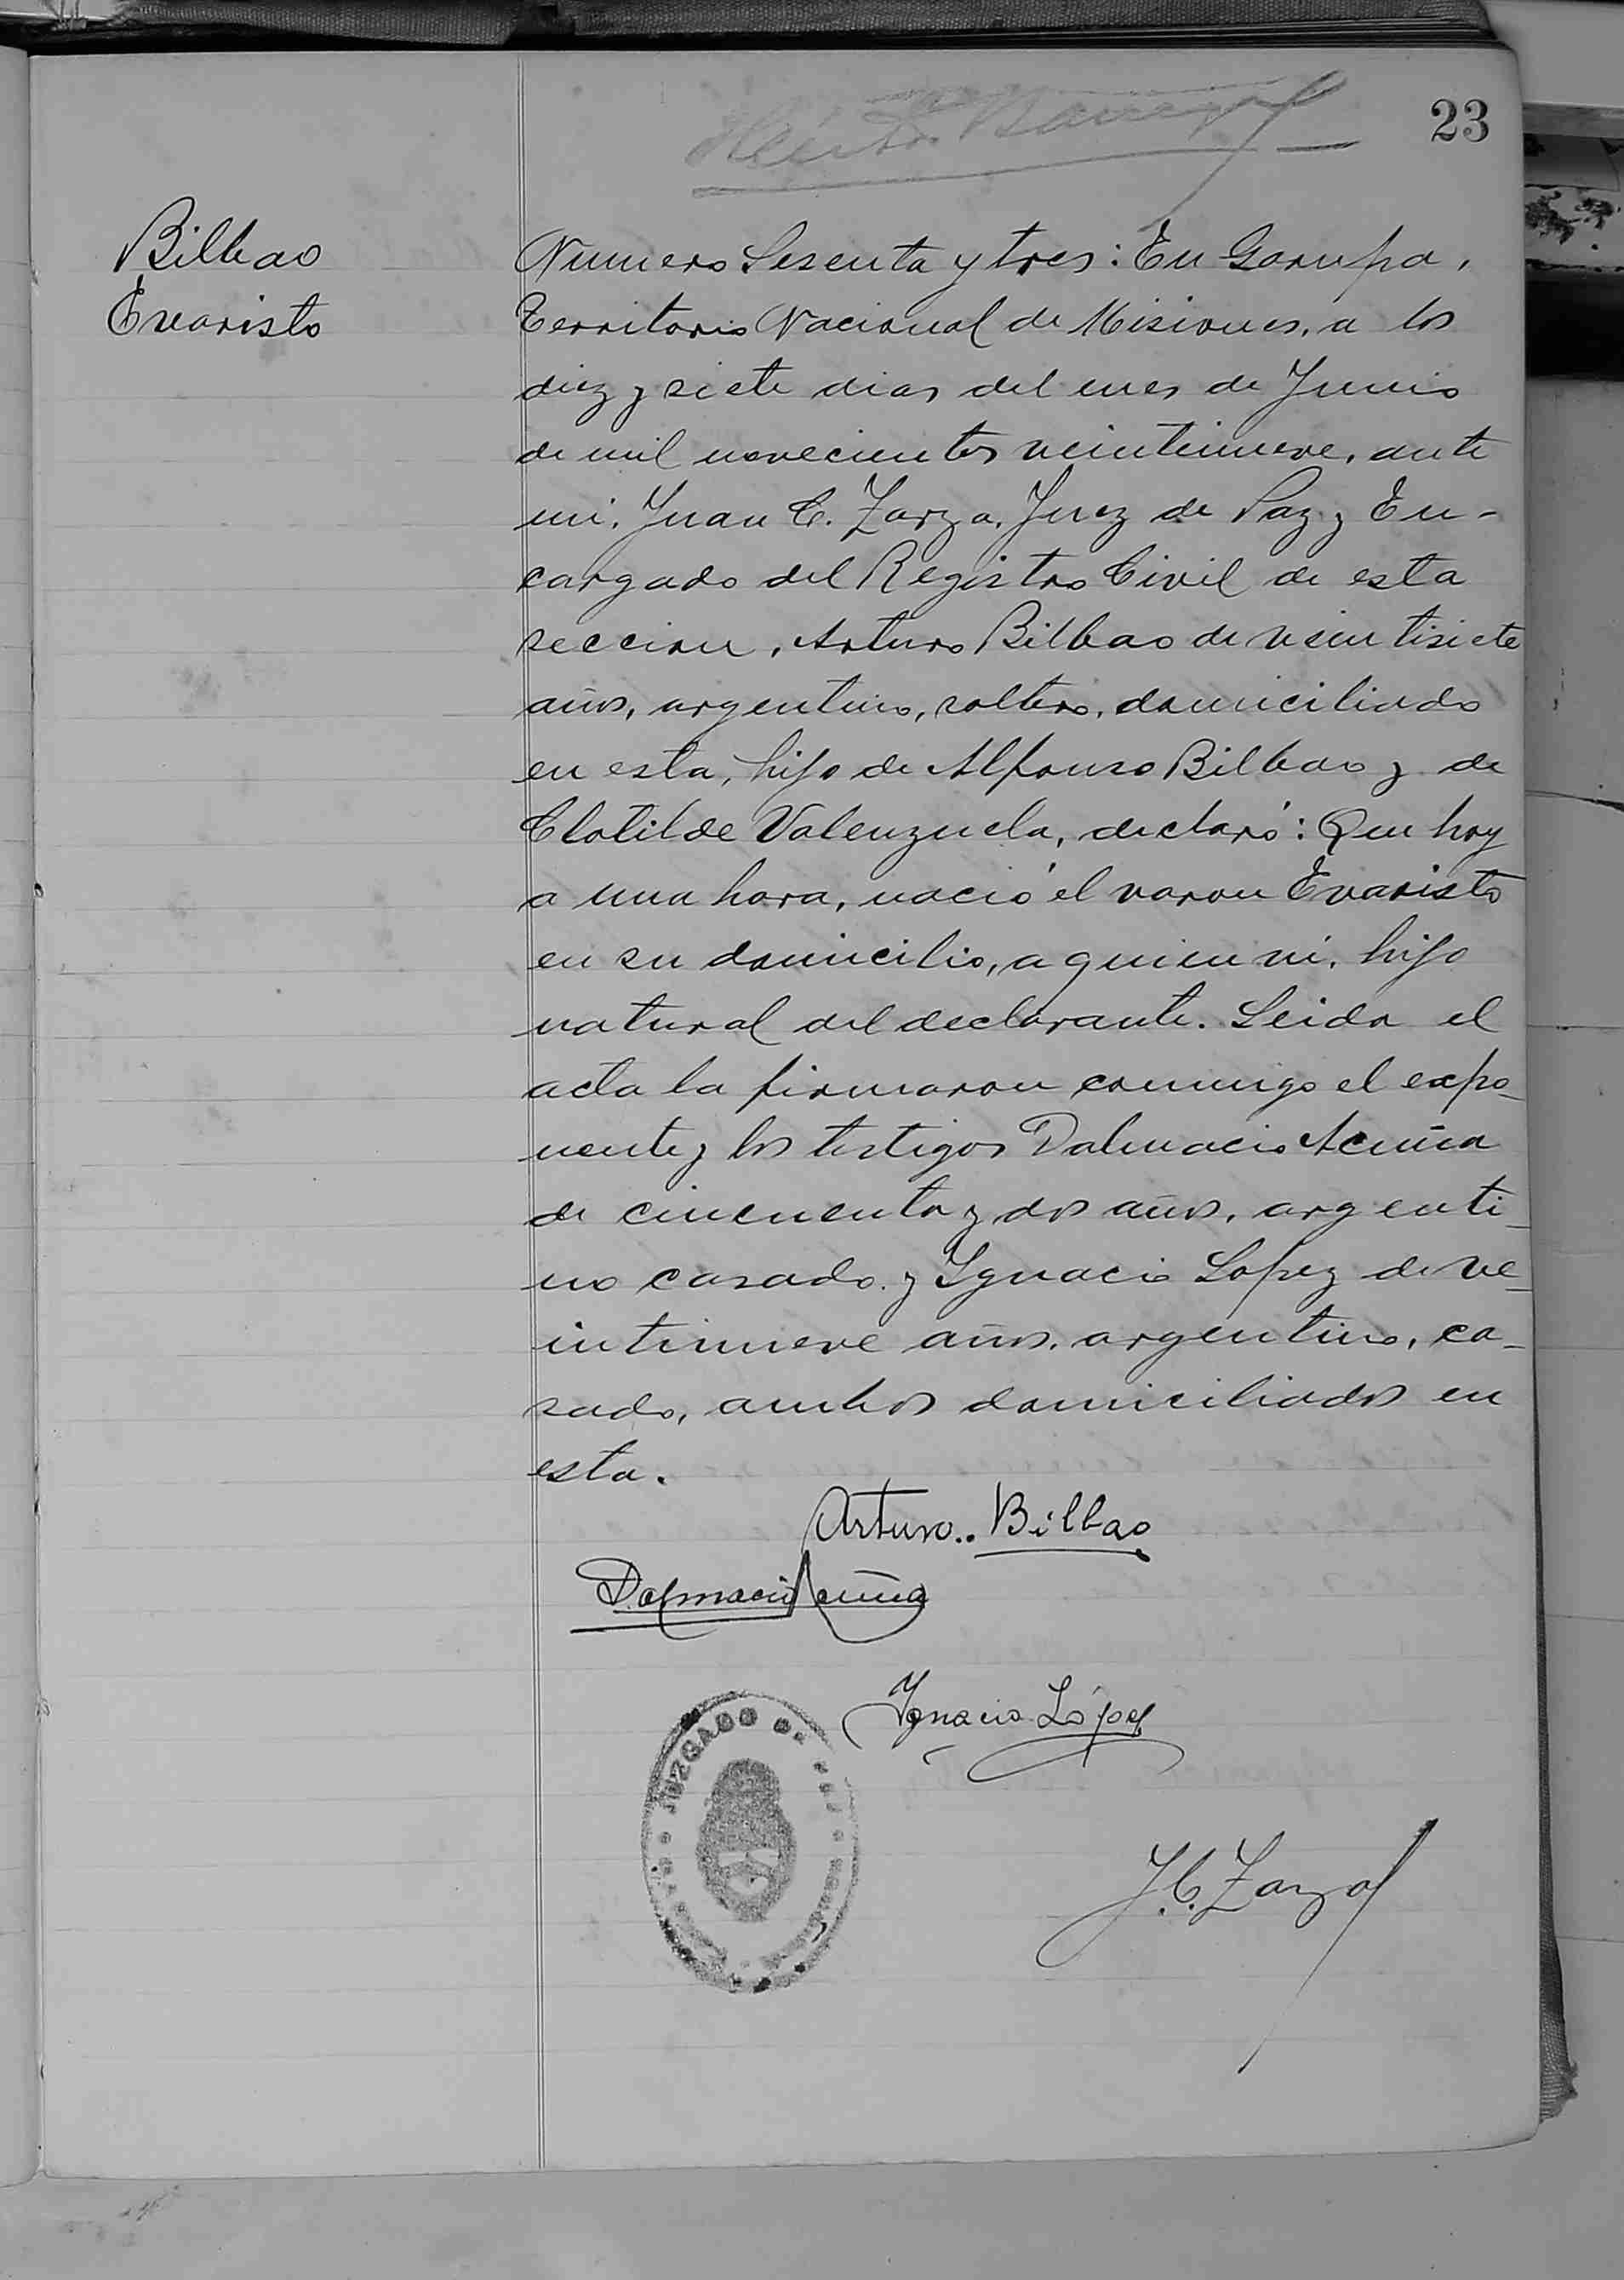 23
Bilbao
Evaristo
Numero Sesenta y tres: En Garupa,
Territorio Nacional de Misiones, a los
diez y siete dias del mes de Junio
de mil novecientos veintinueve, ante
mi, Juan C. Zarza, Juez de Paz y En-
cargado del Registro Civil de esta
seccion, Arturo Bilbao de veintisiete
años, argentino, soltero, domiciliado
en esta, hijo de Alfonso Bilbao y de
Clotilde Valenzuela, declaró: Que hoy
a una hora, nació el varon Evaristo
en su domicilio, a quien vi, hijo
natural del declarante. Leida el
acta la firmaron conmigo el expo-
nente y los testigos Dalmacio Acuña
de cincuenta y dos años, argenti-
no casado y Ignacio Lopez de ve-
intinueve años, argentino, ca-
sado, ambos domiciliados en
esta.
Arturo.. Bilbao
Dalmacio Acuña
Ignacio López
JUZGADO
J. C. Zarza